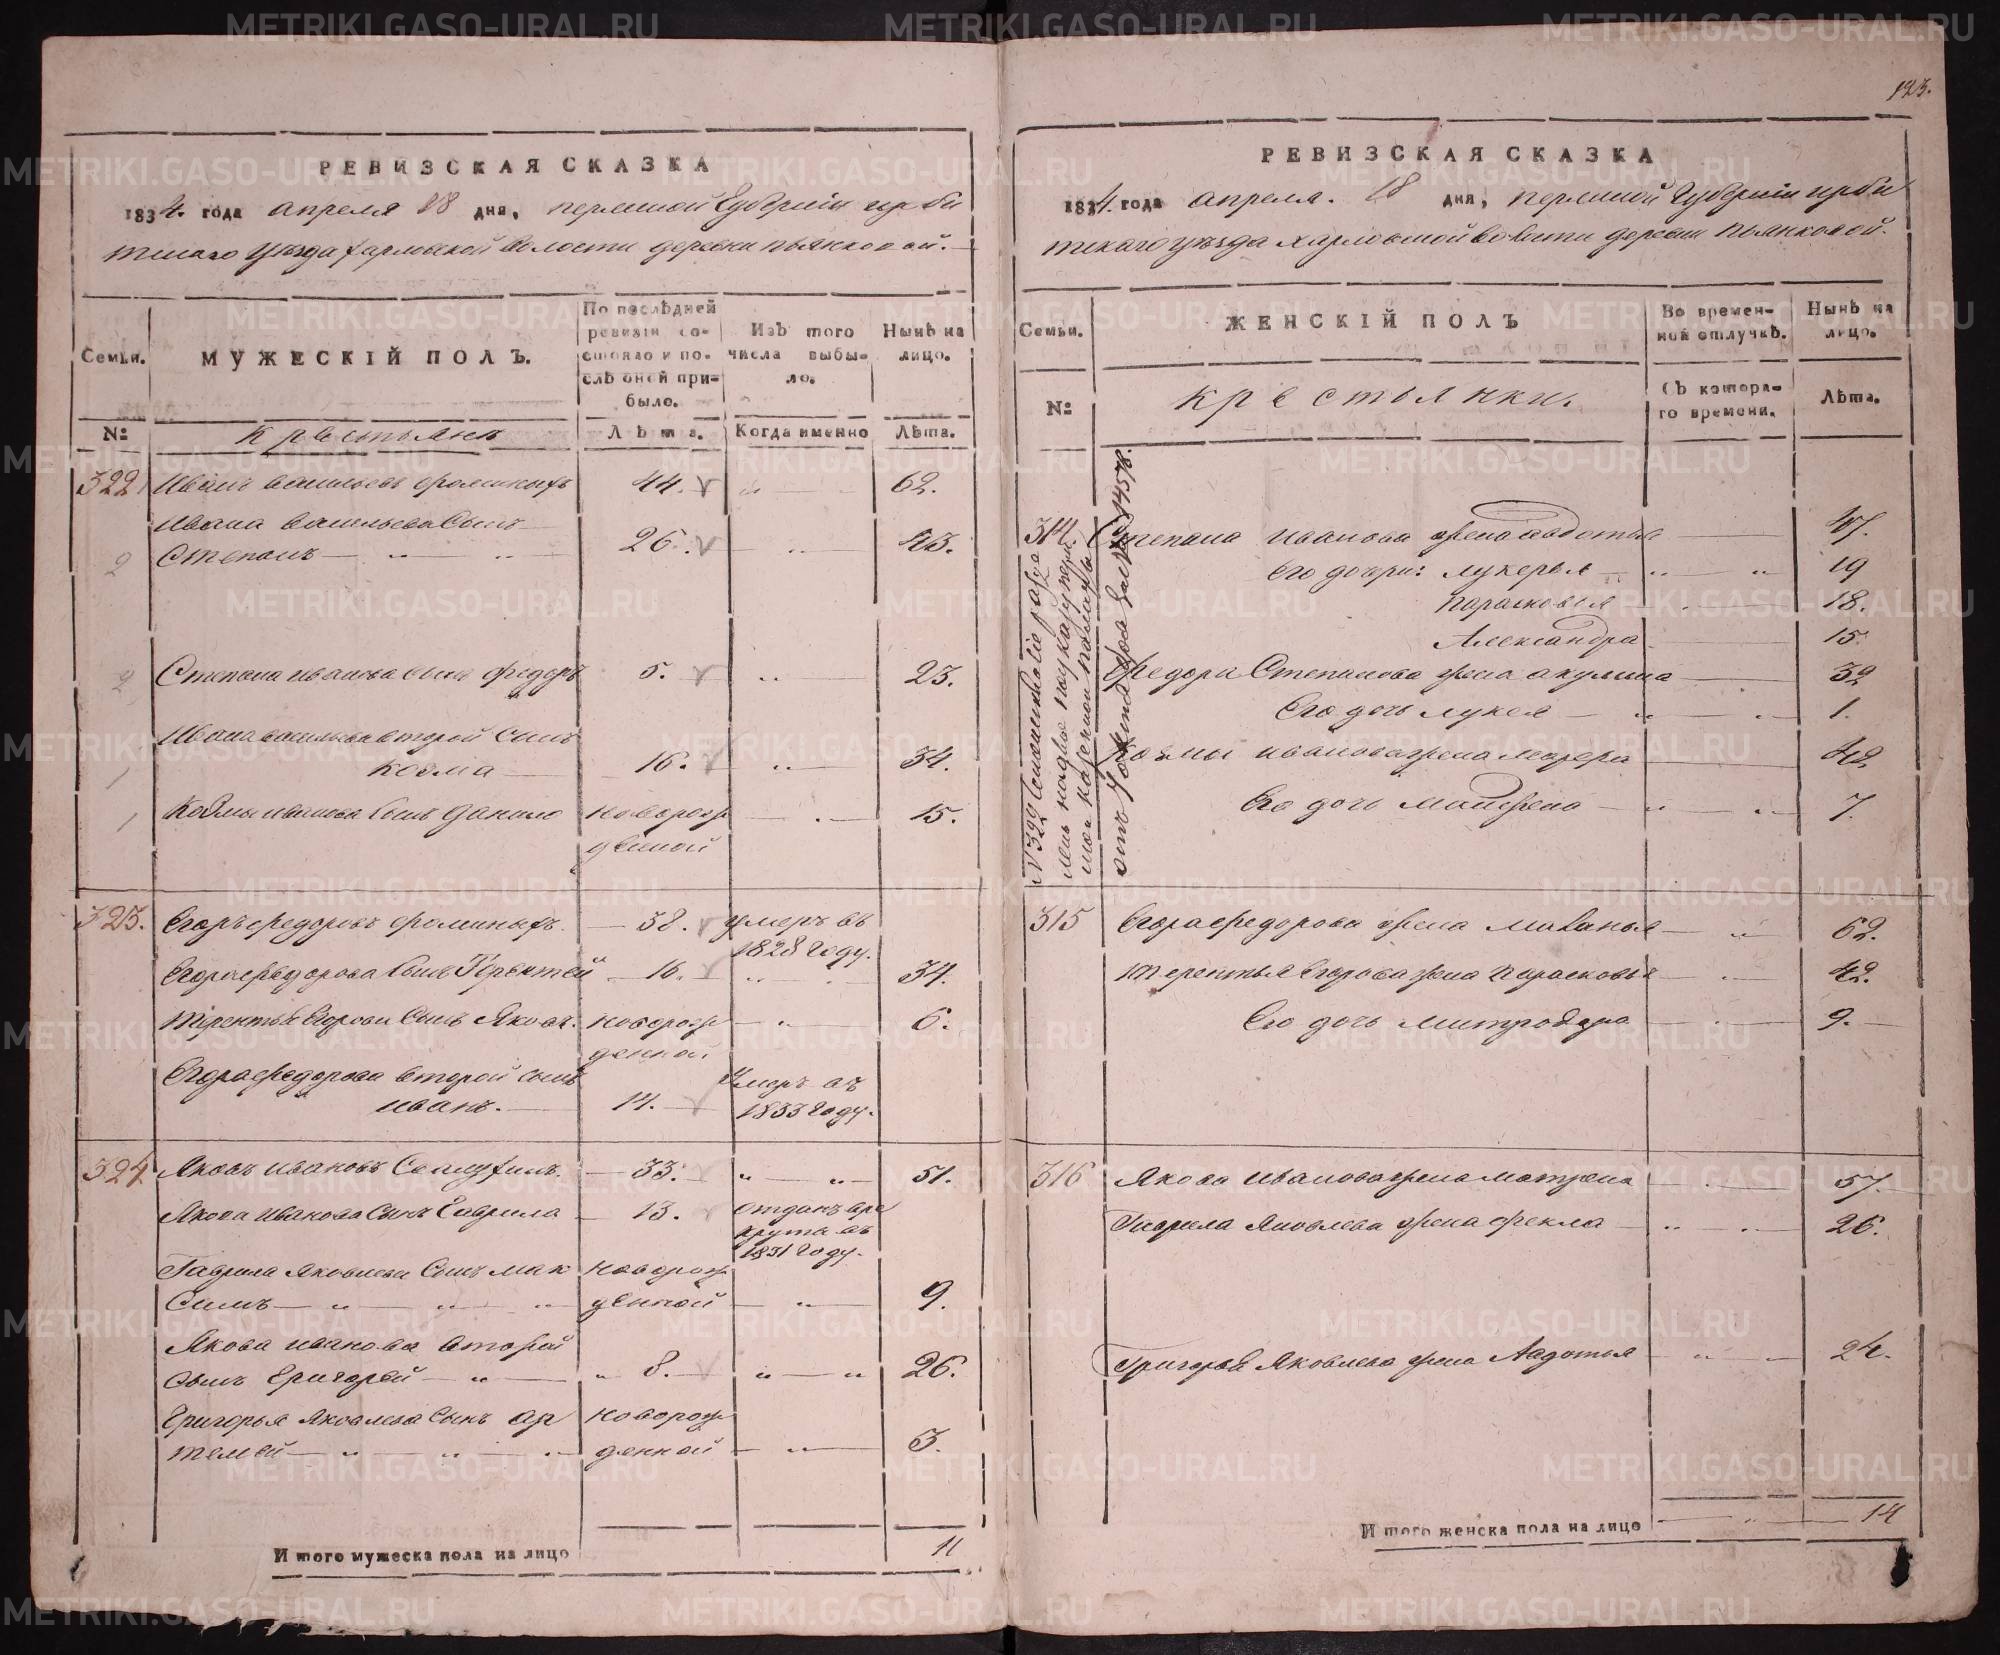 РЕВИЗСКАЯ СКАЗКА
1834. года апреля 18 дня, пермской Губернiи ирби
тскаго Уѣзда харловской Волости деревни пьянковой.
Семьи.
МУЖЕСКІЙ ПОЛЪ.
По послѣдней ревизіи состояло и послѣ оной прибыло.
Изъ того числа выбыло.
Нынѣ на лицо.
№
Крестьянъ
Лѣта.
Когда именно
Лѣта.
322 Иванъ васильевъ фоминыхъ 44. 62.
Ивана васильева Сынъ
2 Степанъ 26. 43.
2 Степана иванова сынъ федоръ 5. 23.
Ивана васильева второй Сынъ
1 козма 16. 34.
1 Козмы иванова Сынъ данило новорож 15.
денной
323. Егоръ федоровъ фоминыхъ. 38. умеръ въ
1828 году.
Егора федорова Сынъ Терентей 16. 34.
терентья Егорова Сынъ Яковъ. новорож 6.
денной
Егора федорова второй сынъ умеръ въ
иванъ. 14. 1833 году.
324 Яковъ ивановъ 33. 51.
Якова иванова Сынъ Гаврила 13. отданъ вре
круты въ
1831 году.
Гаврила Яковлева Сынъ мак новорож
симъ денной 9.
Якова иванова второй
сынъ григорей 8. 26.
григорья Яковлева Сынъ ар новорож
темей денной 3.
Итого мужеска пола на лицо 11
123.
РЕВИЗСКАЯ СКАЗКА
1834. года апреля. 18 дня, пермской Губернiи ирби
тскаго уѣзда харловской волости деревни пьянковой.
Семьи.
ЖЕНСКІЙ ПОЛЪ
Во временной отлучкѣ.
Нынѣ на лицо.
№
крестьянки.
Съ котораго времени.
Лѣта.
314. Степана иванова жена авдотья 47.
Его дочри: лукерья 19
парасковья 18.
Александра 15.
федора Степанова жена акулина 32
Его дочь лукея 1.
козмы иванова жена 42
Его дочь 7.
№ 322
315 Егора федорова жена маланья 62.
терентья Егорова жена парасковья 42.
Его дочь митродора 9.
316 Якова иванова жена матрена 57.
Гаврила Яковлева жена фекла 26.
Григорья Яковлева жена Авдотья 24.
Итого женска пола на лицо 14
METRIKI.GASO-URAL.RU